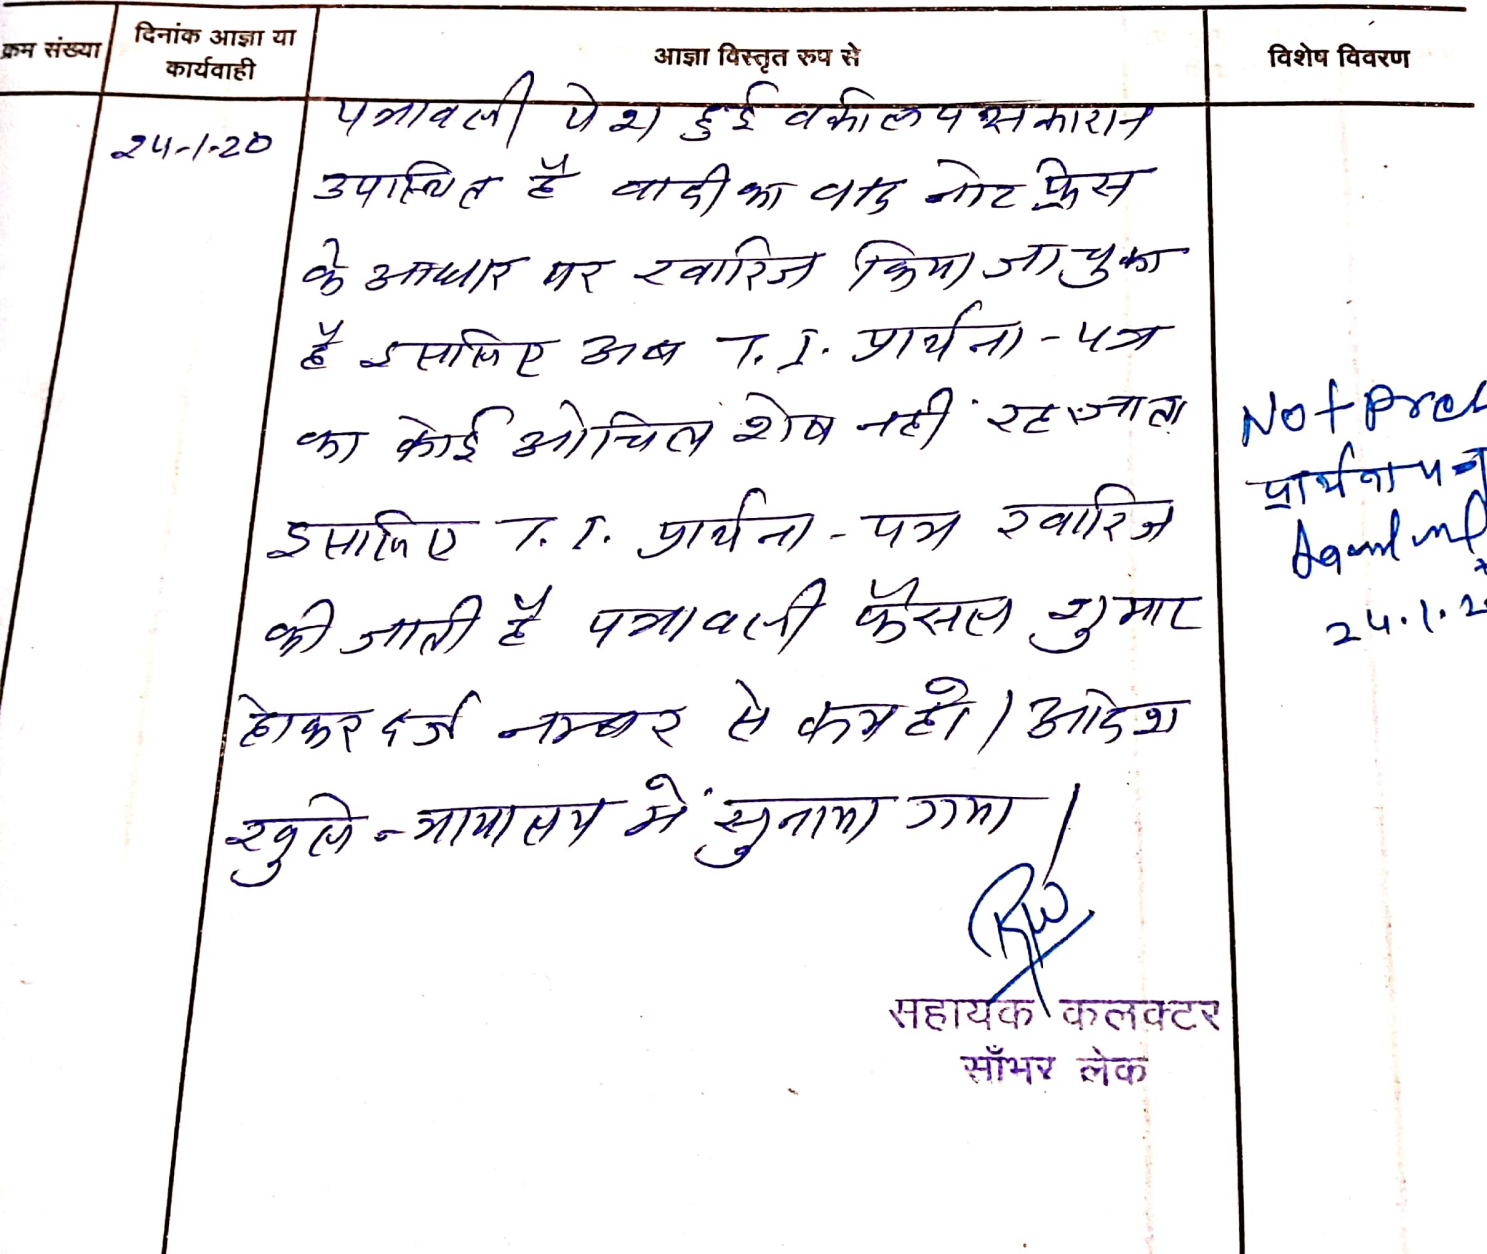 क्रम संख्या
दिनांक आज्ञा या
कार्यवाही
आज्ञा विस्तृत रुप से
विशेष विवरण
24-1-20
पत्रावली पेश हुई वकील पक्षकारान
उपस्थित है वादी का वाद नोट प्रेस
के आधार पर खारिज किया जा चुका
है इसलिए अब T.I. प्रार्थना-पत्र
का कोई ओचित्य शेष नहीं रह जाता
इसलिए T.I. प्रार्थना-पत्र खारिज
की जाती है पत्रावली फैसल शुमार
होकर दर्ज नम्बर से कम हो। आदेश
खुले न्यायालय में सुनाया गया।
सहायक कलक्टर
साँभर लेक
Not
प्रार्थना पत्र
24.1.2